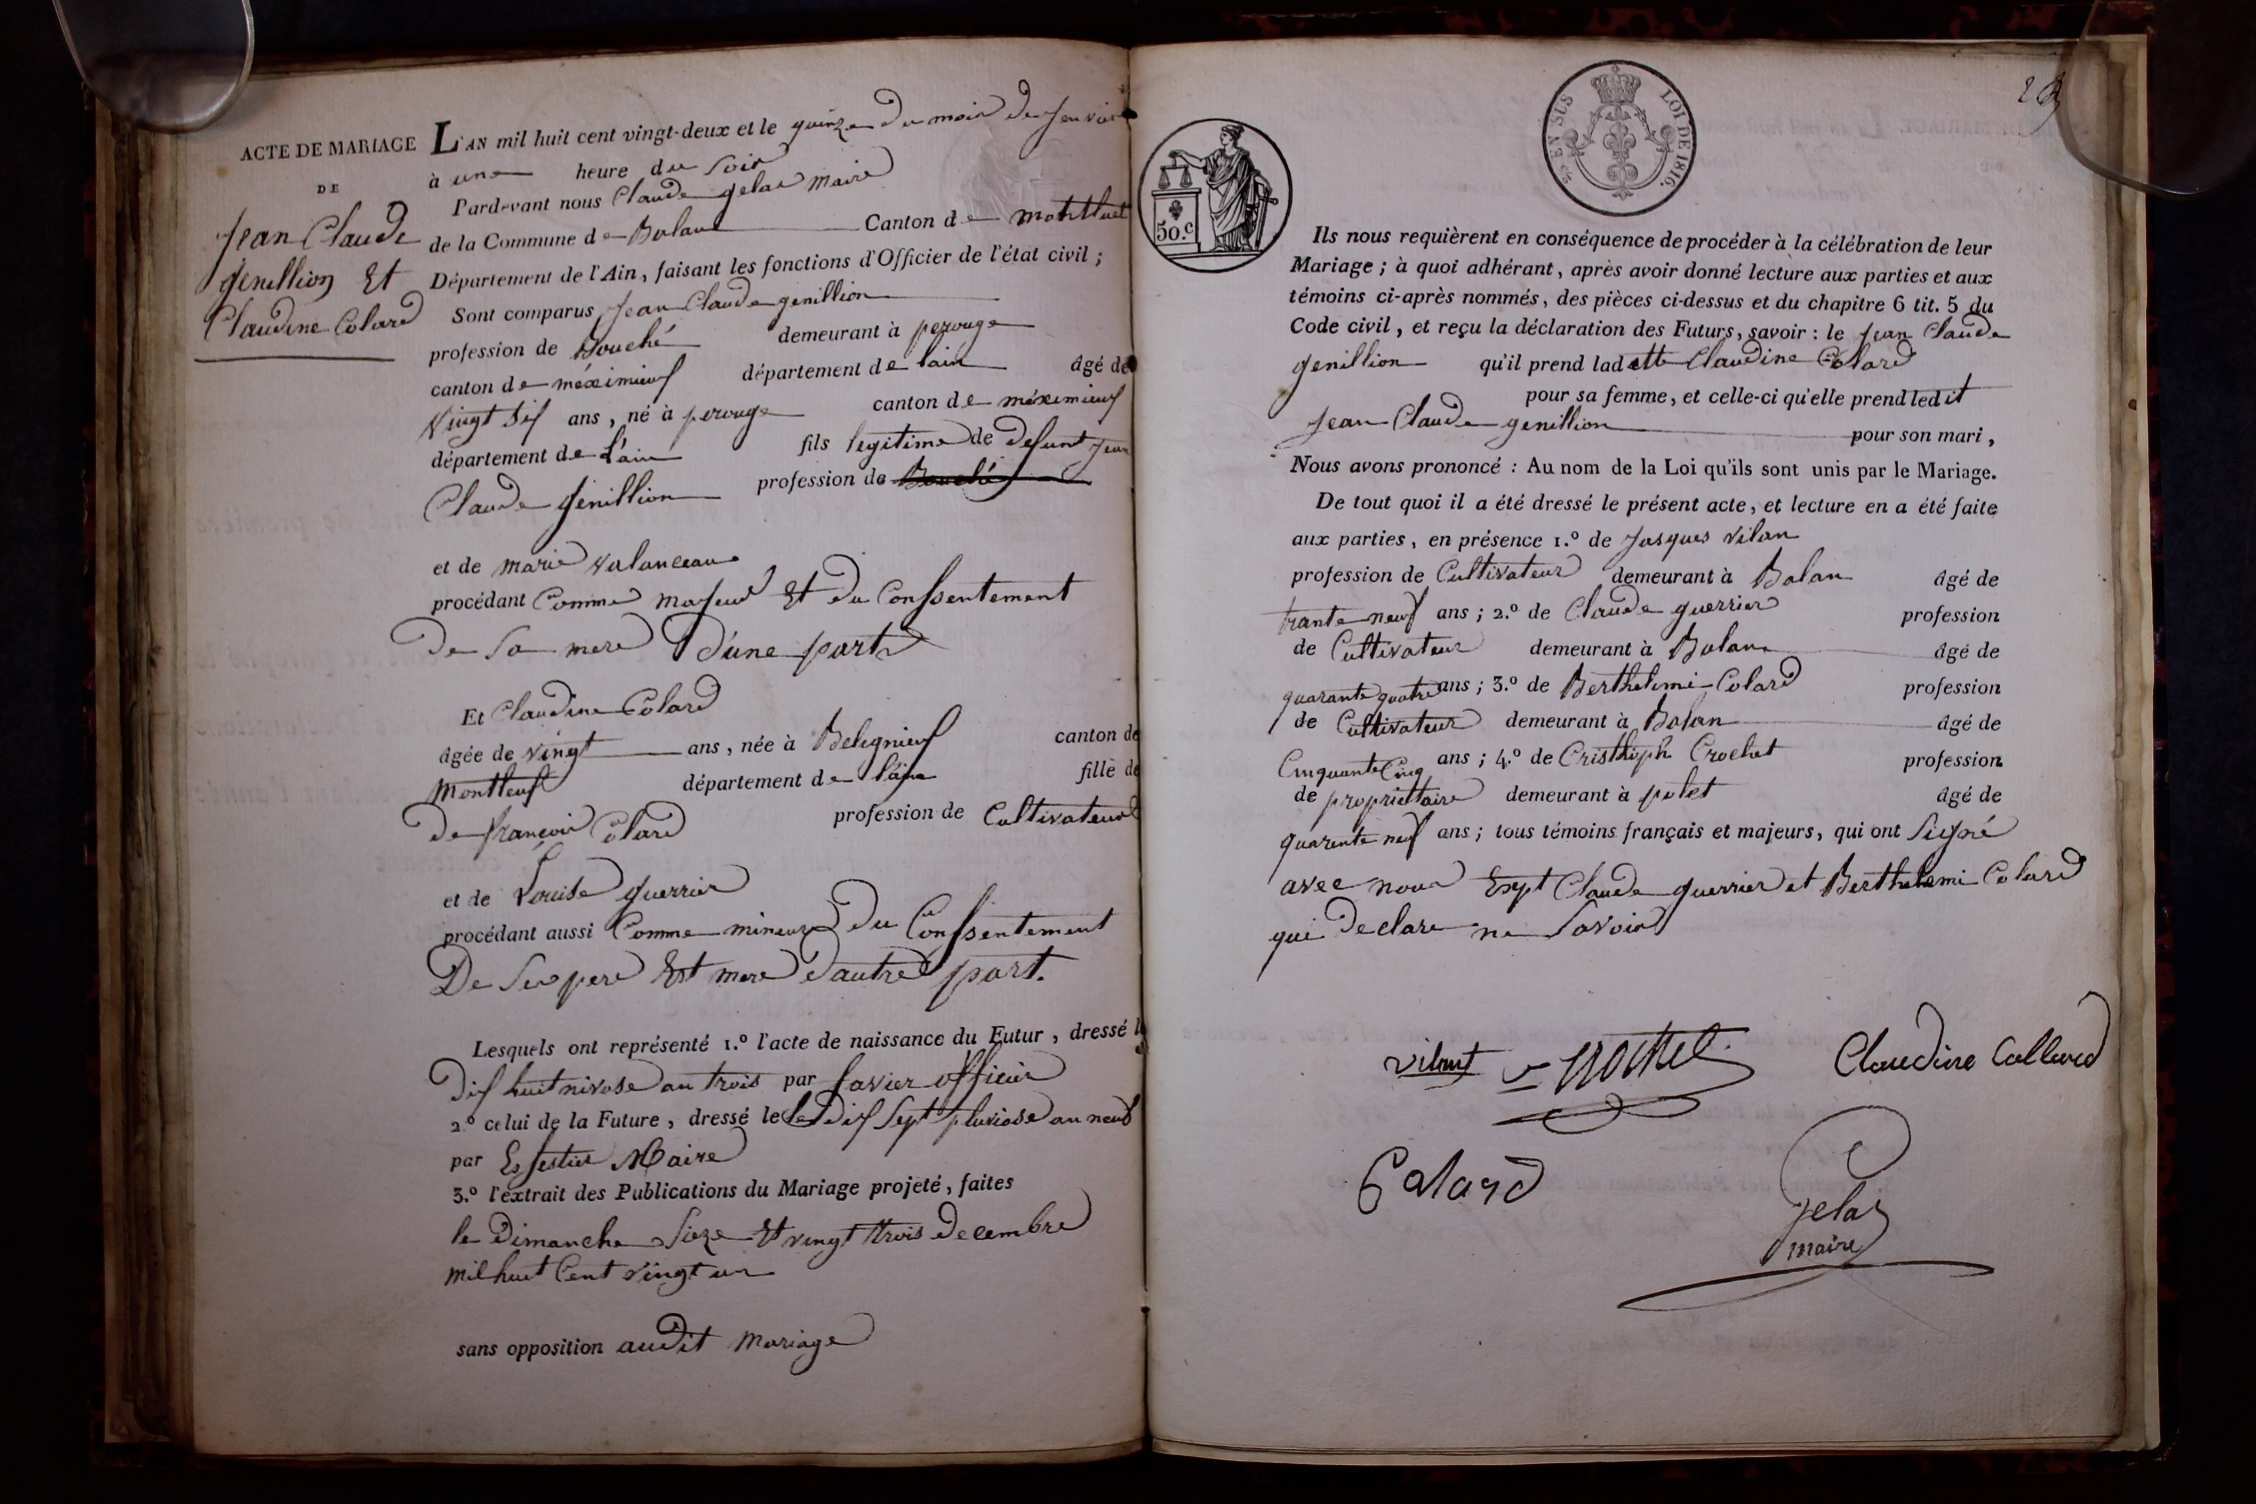 ACTE DE MARIAGE
DE
Jean Claude
genillion Et
Claudine Colard
L'AN mil huit cent vingt-deux et le quinze du mois de Janvier
à une heure du soir
Pardevant nous Claude gelas maire
de la Commune de Balan Canton de montluel
Département de l'Ain, faisant les fonctions d'Officier de l'état civil ;
Sont comparus Jean Claude genillion
profession de Bouché demeurant à perouge
canton de méximieuf département de lain âgé de
vingt sif ans, né à perouge canton de méximieuf
département de L'ain fils legitime de defunt Jean
Claude genillion profession de Bouché
et de marie valanceau
procédant Comme majeur Et du Conssentement
De sa mere D'une part
Et Claudine Colard
âgée de vingt ans, née à Belignieuf canton de
Montleuf département de L'ain fille de
De françois Colard profession de Cultivateur
et de Louise guerrier
procédant aussi Comme mineure du Conssentement
De ses pere Est mere d'autre part.
Lesquels ont représenté 1.º l'acte de naissance du Futur, dressé le
Dif huit nivose an trois par favier officier
2.º celui de la Future, dressé le Le Dif sept pluviose an neuf
par Maire
3.º l'extrait des Publications du Mariage projeté, faites
le Dimanche Sieze Et vingt ttrois decembre
mil huit Cent vingt un
sans opposition audit mariage
50.c
EN SUS
LOI DE 1816.
Ils nous requièrent en conséquence de procéder à la célébration de leur
Mariage ; à quoi adhérant, après avoir donné lecture aux parties et aux
témoins ci-après nommés, des pièces ci-dessus et du chapitre 6 tit. 5 du
Code civil, et reçu la déclaration des Futurs, savoir : le Jean Claude
genillion qu'il prend ladette Claudine Colard
pour sa femme, et celle-ci qu'elle prend ledit
Jean Claude genillion pour son mari,
Nous avons prononcé : Au nom de la Loi qu'ils sont unis par le Mariage.
De tout quoi il a été dressé le présent acte, et lecture en a été faite
aux parties, en présence 1.º de Jasques vilan
profession de Cultivateur demeurant à Balan âgé de
trante neuf ans ; 2.º de Claude guerrier profession
de Cultivateur demeurant à Balan âgé de
quarante quatre ans ; 3.º de Berthelemi Colard profession
de Cultivateur demeurant à Balan âgé de
Cinquante Cinq ans ; 4.º de Cristhoph Crochet profession
de propriettaire demeurant à âgé de
quarente neuf ans ; tous témoins français et majeurs, qui ont signé
avec nous Exept Claude guerrier et Berthelemi Colard
qui Declare ne savoir
Claudine Collard
Colard
gelas
maire